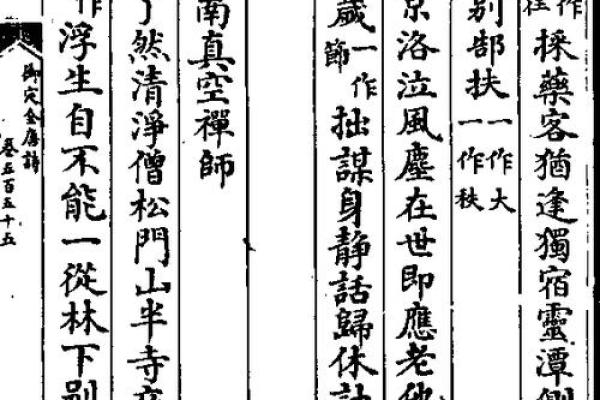 採藥客猶逢獨宿靈潭側
別鄣扶一作大一作秩
京洛泣風塵在世即應老他
歲一作節拙謀身靜話歸休計
南真空禪師
了然清淨僧松門山半寺
作浮生自不能一從林下別
御定全唐詩
卷五百五十五